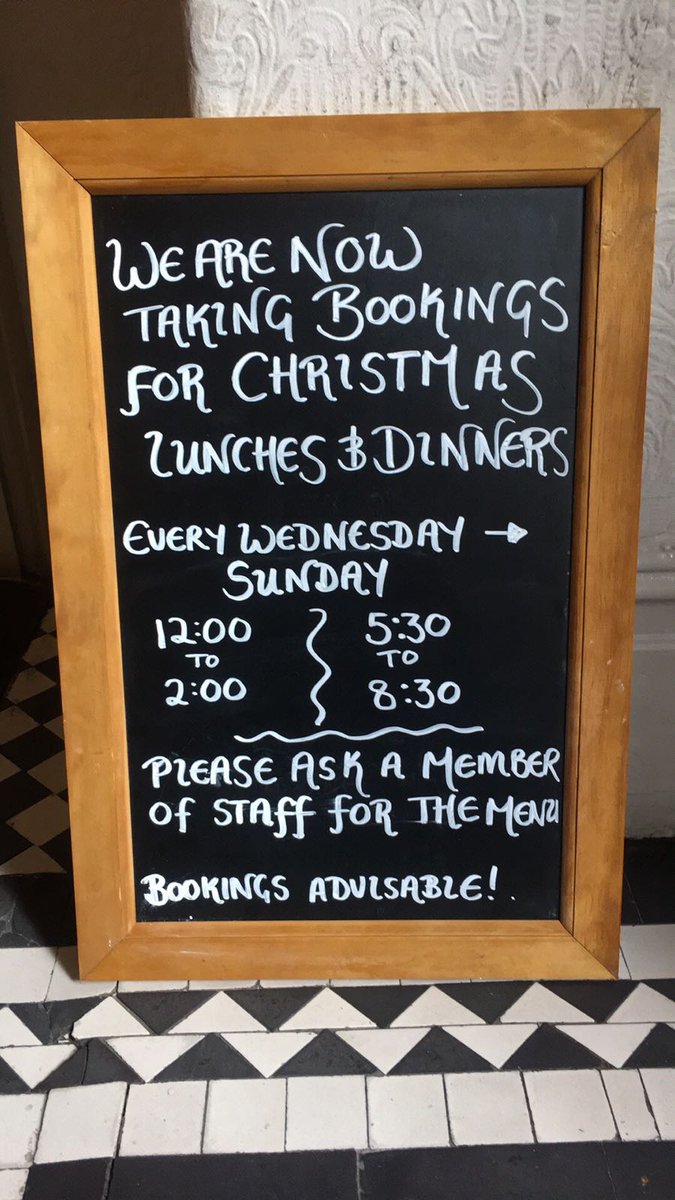 WE ARE NOW
TAKING BOOKINGS
FOR CHRISTMAS
LUNCHES & DINNERS
EVERY WEDNESDAY →
SUNDAY
12:00 5:30
TO TO
2:00 8:30
PLEASE ASK A MEMBER
OF STAFF FOR THE MENU
BOOKINGS ADVISABLE!.